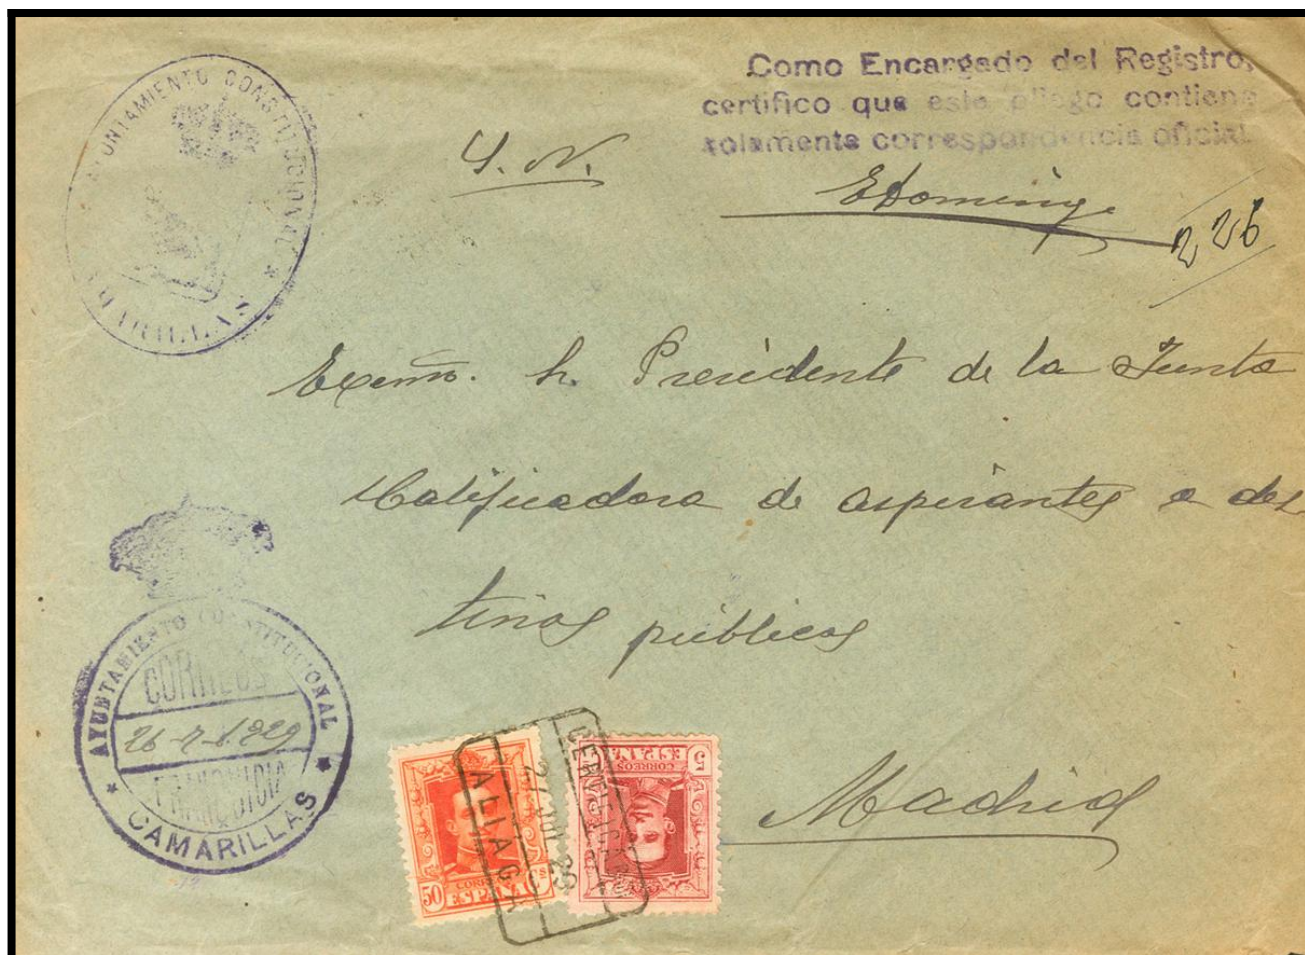 AYUNTAMIENTO CONSTITUCIONAL *
CAMARILLAS
Como Encargado del Registro,
certifico que este pliego contiene
solamente correspondencia oficial.
S. N.
EDoming
226
Excmo. Sr. Presidente de la Junta
Calificadora de aspirantes a des
tinos públicos
Madrid
AYUNTAMIENTO CONSTITUCIONAL
CORREOS
26-7-1.929
FRANQUICIA
* CAMARILLAS *
CERTIFICADO
27 JUL 29
ALIAGA
CORREOS
50 ESPAÑA Cs
5 ESPAÑA
CORREOS